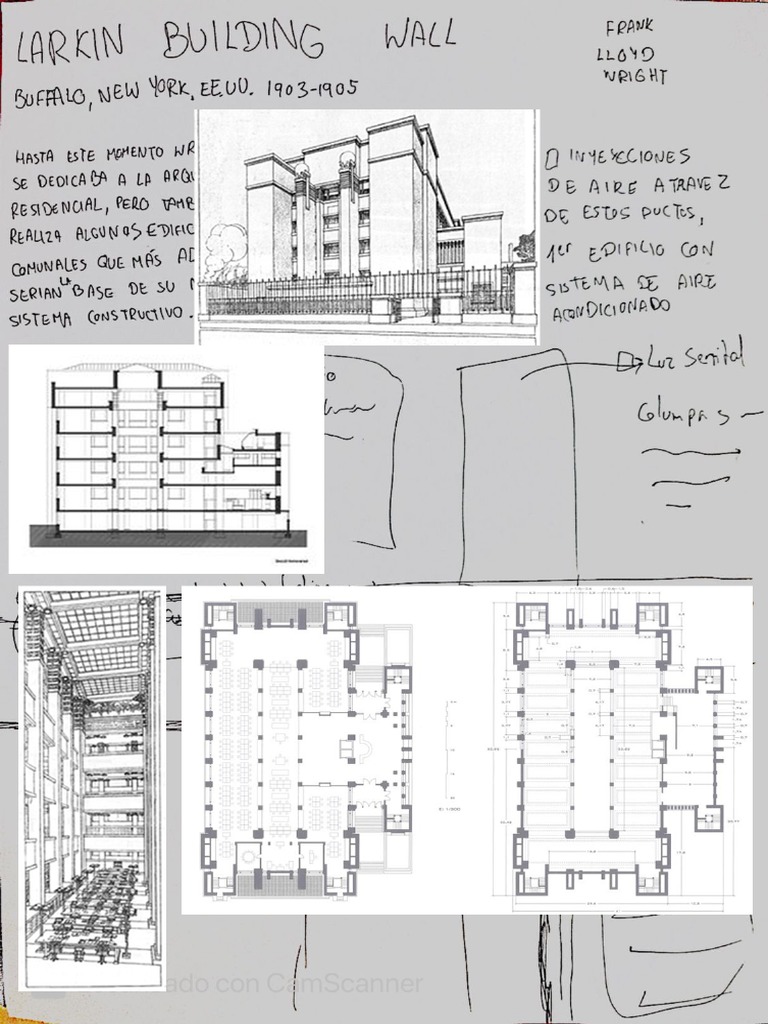 LARKIN BUILDING WALL
FRANK
LLOYD
WRIGHT
BUFFALO, NEW YORK, EE.UU. 1903-1905
HASTA ESTE MOMENTO WR
SE DEDICABA A LA ARQU
RESIDENCIAL, PERO TAMB
REALIZA ALGUNOS EDIFIC
COMUNALES QUE MÁS AD
SERIAN LA BASE DE SU
SISTEMA CONSTRUCTIVO.
INYEYCCIONES
DE AIRE A TRAVEZ
DE ESTOS DUCTOS,
1er EDIFICIO CON
SISTEMA DE AIRE
ACONDICIONADO
Luz
Columnas
ado con CamScanner